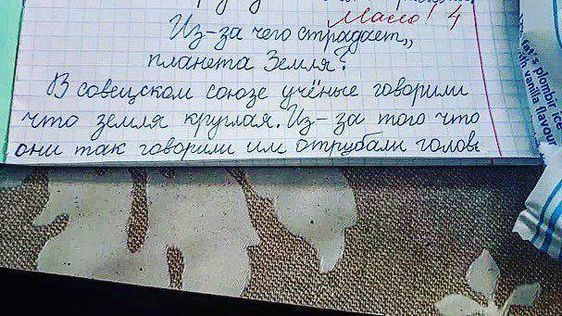 Мало! 4
Из-за чего страдает,,
планета Земля?
В совецском союзе учёные говорили
что земля круглая. Из-за того что
они так говорили им отрубали головы
plombir ice
with vanilla flavour